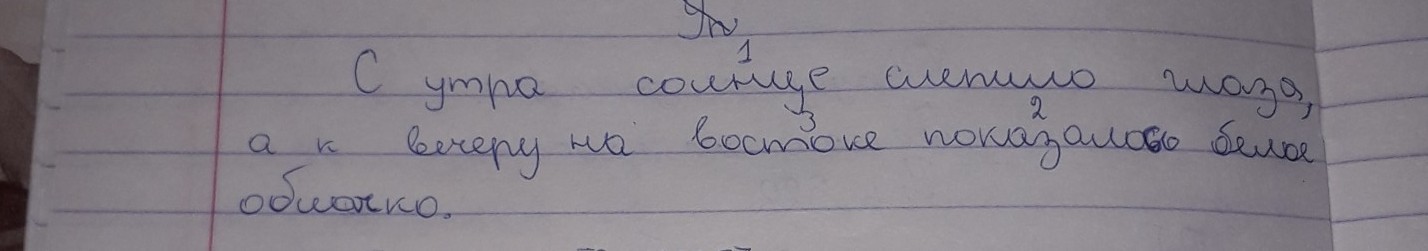 1
С утра солнце слепило глаза,
3 2
а к вечеру на востоке показалось белое
облачко.